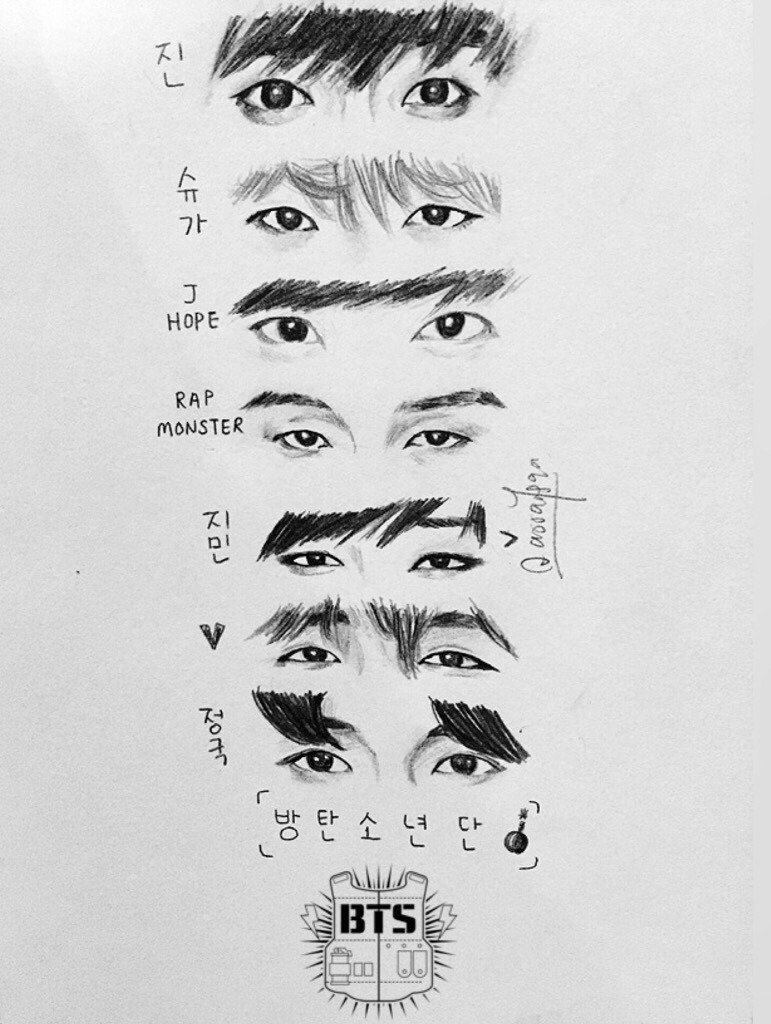 진
슈
가
J
HOPE
RAP
MONSTER
지
민
V
정
국
방탄소년단
BTS